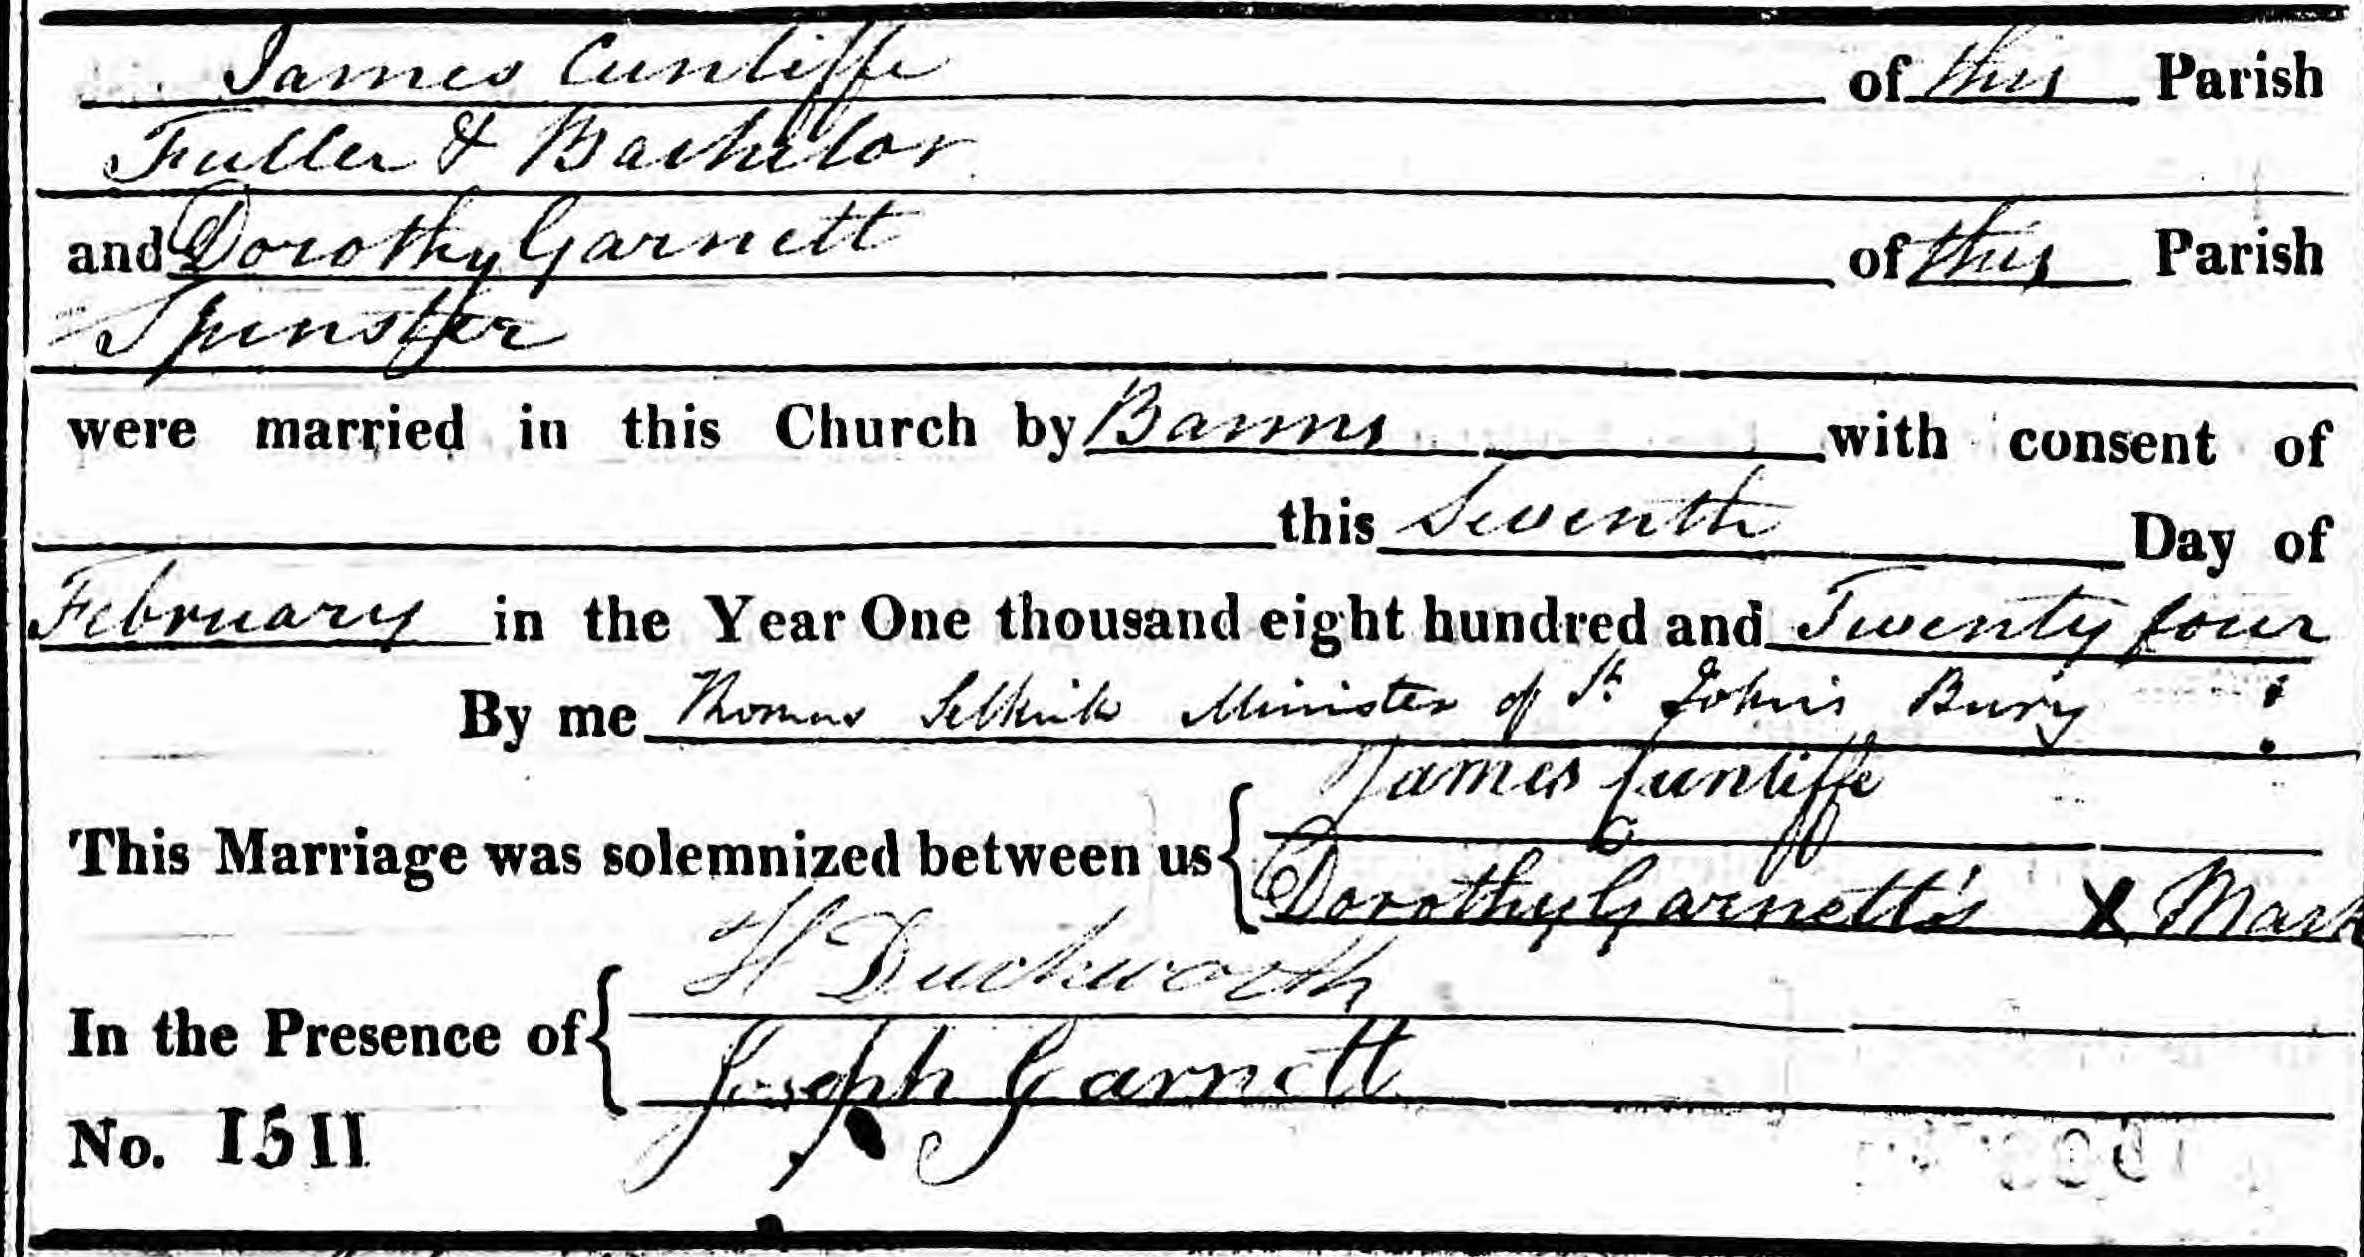 James Cunliffe of this Parish
Fuller & Bachelor
and Dorothy Garnett of this Parish
Spinster
were married in this Church by Banns with consent of
this Seventh Day of
February in the Year One thousand eight hundred and Twenty four
By me Thomas Selkirk Minister of St Johns Bury
This Marriage was solemnized between us { James Cunliffe
Dorothy Garnett's X Mark
In the Presence of { H Duckworth
Joseph Garnett
No. 1511